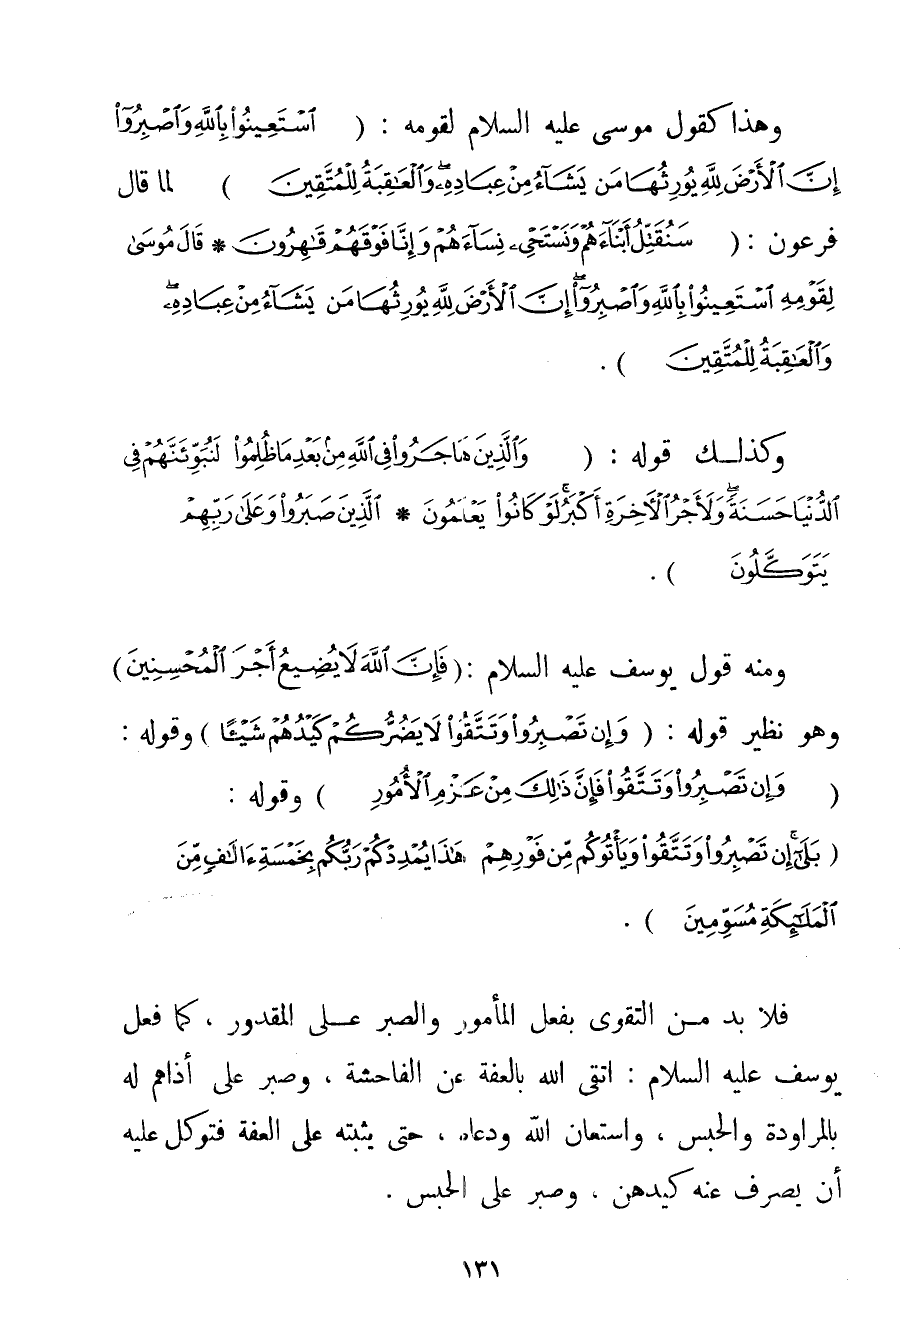 وهذا كقول موسى عليه السلام لقومه : ( ٱسْتَعِينُوا۟ بِٱللَّهِ وَٱصْبِرُوٓا۟
إِنَّ ٱلْأَرْضَ لِلَّهِ يُورِثُهَا مَن يَشَآءُ مِنْ عِبَادِهِۦ ۖ وَٱلْعَٰقِبَةُ لِلْمُتَّقِينَ ) لما قال
فرعون : ( سَنُقَتِّلُ أَبْنَآءَهُمْ وَنَسْتَحْىِۦ نِسَآءَهُمْ وَإِنَّا فَوْقَهُمْ قَٰهِرُونَ * قَالَ مُوسَىٰ
لِقَوْمِهِ ٱسْتَعِينُوا۟ بِٱللَّهِ وَٱصْبِرُوٓا۟ ۖ إِنَّ ٱلْأَرْضَ لِلَّهِ يُورِثُهَا مَن يَشَآءُ مِنْ عِبَادِهِۦ ۖ
وَٱلْعَٰقِبَةُ لِلْمُتَّقِينَ ) .
وكذلك قوله : ( وَٱلَّذِينَ هَاجَرُوا۟ فِى ٱللَّهِ مِنۢ بَعْدِ مَا ظُلِمُوا۟ لَنُبَوِّئَنَّهُمْ فِى
ٱلدُّنْيَا حَسَنَةً ۖ وَلَأَجْرُ ٱلْأَخِرَةِ أَكْبَرُ ۚ لَوْ كَانُوا۟ يَعْلَمُونَ * ٱلَّذِينَ صَبَرُوا۟ وَعَلَىٰ رَبِّهِمْ
يَتَوَكَّلُونَ ) .
ومنه قول يوسف عليه السلام : ( فَإِنَّ ٱللَّهَ لَا يُضِيعُ أَجْرَ ٱلْمُحْسِنِينَ )
وهو نظير قوله : ( وَإِن تَصْبِرُوا۟ وَتَتَّقُوا۟ لَا يَضُرُّكُمْ كَيْدُهُمْ شَيْـًٔا ) وقوله :
( وَإِن تَصْبِرُوا۟ وَتَتَّقُوا۟ فَإِنَّ ذَٰلِكَ مِنْ عَزْمِ ٱلْأُمُورِ ) وقوله :
( بَلَىٰٓ ۚ إِن تَصْبِرُوا۟ وَتَتَّقُوا۟ وَيَأْتُوكُم مِّن فَوْرِهِمْ هَٰذَا يُمْدِدْكُمْ رَبُّكُم بِخَمْسَةِ ءَالَٰفٍ مِّنَ
ٱلْمَلَٰٓئِكَةِ مُسَوِّمِينَ ) .
فلا بد من التقوى بفعل المأمور والصبر على المقدور ، كما فعل
يوسف عليه السلام : اتقى الله بالعفة عن الفاحشة ، وصبر على أذاهم له
بالمراودة والحبس ، واستعان الله ودعاه ، حتى يثبته على العفة فتوكل عليه
أن يصرف عنه كيدهن ، وصبر على الحبس .
١٣١